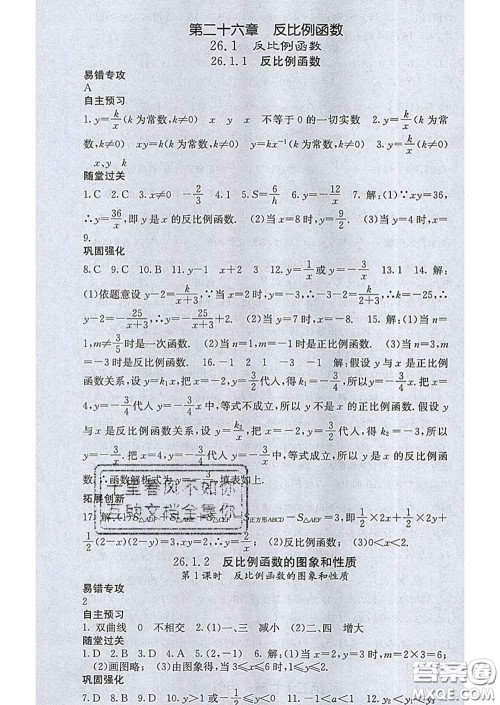 第二十六章 反比例函数
26.1 反比例函数
26.1.1 反比例函数
易错专攻
A
自主预习
1.y=k/x(k为常数,k≠0) x y x 不等于0的一切实数 2.y=k/x(k为常
数,k≠0) xy=k(k为常数,k≠0) y=kx⁻¹(k为常数,k≠0) 3.y=k/x(k为常数,k≠0)
x、y k
随堂过关
1.C 2.C 3.≠0 -2/3 4.1 5.S=6/h 6.y=-12/x 7.解:(1)∵xy=36,
∴y=36/x,即y是x的反比例函数. (2)当x=8时,y=9/2. (3)当y=4时,x=
9.
巩固强化
8.C 9.C 10.B 11.y-1 x+2 3 12.y=1/x或y=-3/x 13.1 14.解:
(1)依题意设y-2=k/(x+3),∵当x=2时,y=-3,∴-3-2=k/(2+3),∴k=-25,∴
y-2=-25/(x+3). (2)当x=-8时,y=7. 15.解:(1)当n=1,
m≠3/5时是一次函数. (2)当n=1,m=-1时是正比例函数. (3)当n=3,m
=-3时是反比例函数. 16.-1 2 -3 -1 解:假设y与x是正比例
函数关系,设y=k₁x,把x=-2,y=3/2代入,得k₁=-3/4,所以y=-3/4x.把x=
4,y=-3/4代入y=-3/4x中,等式不成立,所以y不是x的正比例函数.假设y
与x是反比例函数关系,设y=k₂/x.把x=-2,y=3/2代入,得k₂=-3,所以y=
-3/x.把x=4,y=-3/4代入y=-3/x中,等式成立,所以y是x的反比例函
数.∴函数解析式为y=-3/x.填表如上.
千里春风不如你
互缺文档全靠你
拓展创新
17.解:(1)S△AEF=S正方形ABCD-S△AEF=3,即1/2×2x+1/2×2y+
1/2(2-x)(2-y)=3. (2)y=2/x. (3)0<x<2.
26.1.2 反比例函数的图象和性质
第1课时 反比例函数的图象和性质
易错专攻
2
自主预习
1.双曲线 0 不相交 2.(1)一、三 减小 (2)二、四 增大
随堂过关
1.C 2.D 3.A 4.A 5.> 6.解:(1)当x=2,y=3时,m=2×3=6;
(2)画图略; (3)由图象得,当3≤x≤6时,1≤y≤2.
巩固强化
7.D 8.D 9.A 10.y>1或-1/2≤y<0
答案圈
MXQE.COM